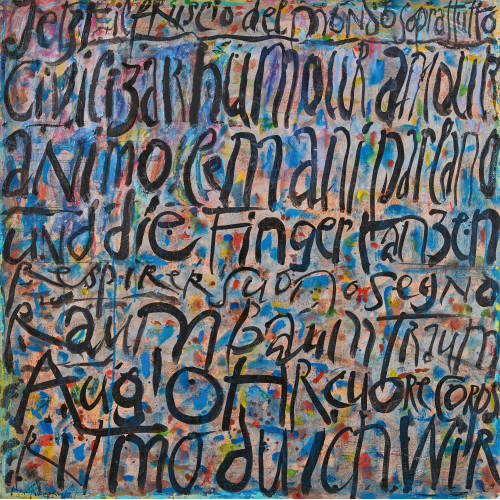 Jetzt il fruscio del mondo soprattutto
civilizar humour amour
animo le mani parlano
und die Finger tanzen
Respirer suono segno
Raum Baum Traum
Aug' Ohr cuore cords
ritmo du ich Wir